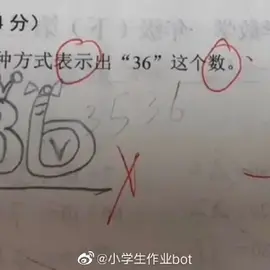 4分）
种方式表示出“36”这个数。
36 3536
@小学生作业bot